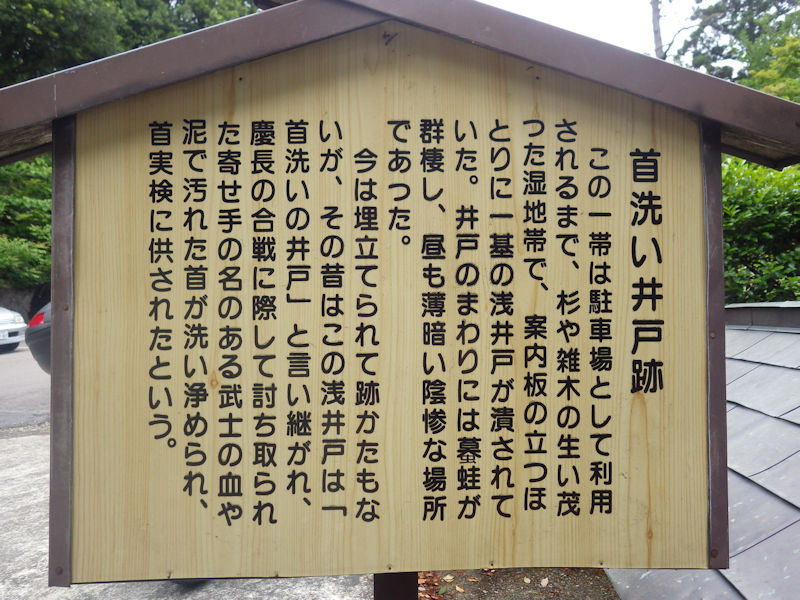 首洗い井戸跡
この一帯は駐車場として利用
されるまで、杉や雑木の生い茂
つた湿地帯で、案内板の立つほ
とりに一基の浅井戸が潰されて
いた。井戸のまわりには蟇蛙が
群棲し、昼も薄暗い陰惨な場所
であつた。
今は埋立てられて跡かたもな
いが、その昔はこの浅井戸は「
首洗いの井戸」と言い継がれ、
慶長の合戦に際して討ち取られ
た寄せ手の名のある武士の血や
泥で汚れた首が洗い浄められ、
首実検に供されたという。